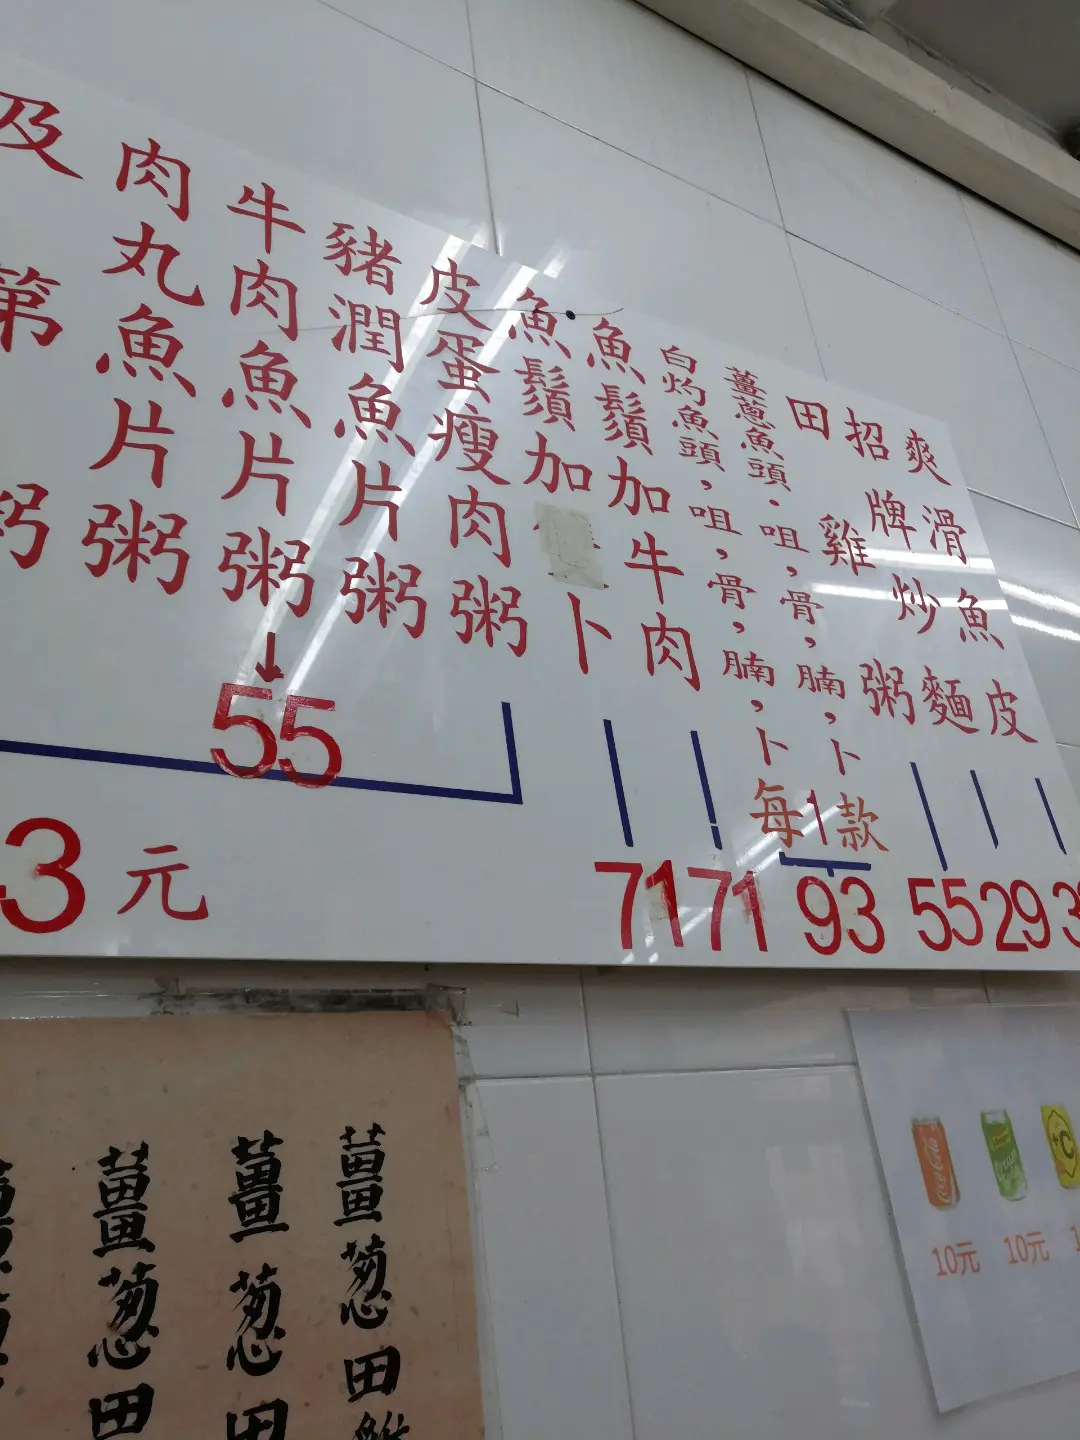 爽滑魚皮
招牌炒麵
29
田雞粥
55
薑蔥魚頭.咀,骨,腩,卜
白灼魚頭,咀,骨,腩,卜
每1款
93
魚鬚加牛肉
71
魚鬚加
卜
71
皮蛋瘦肉粥
豬潤魚片粥
牛肉魚片粥
↓
55
肉丸魚片粥
及第
粥
3元
薑葱田
薑葱田
薑葱田
Coca-Cola
10元
10元
+C